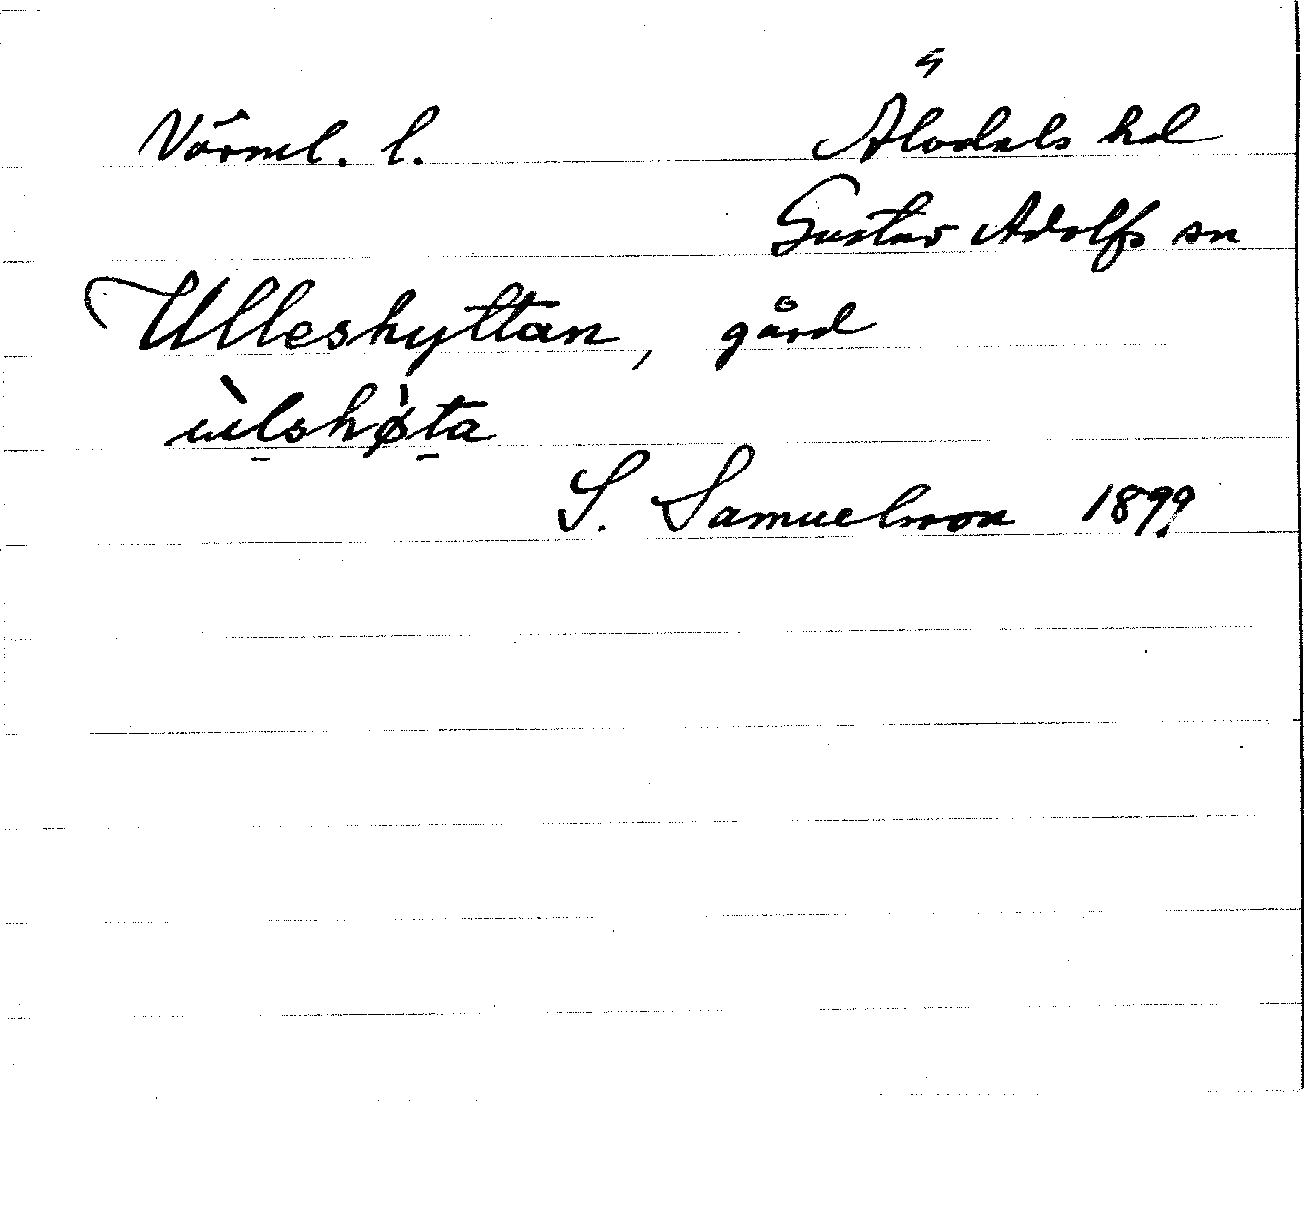 Värml. l. Älvdals hd
Gustav Adolfs sn
Ulleshyttan, gård
ùlshø̀ta
S. Samuelsson 1899